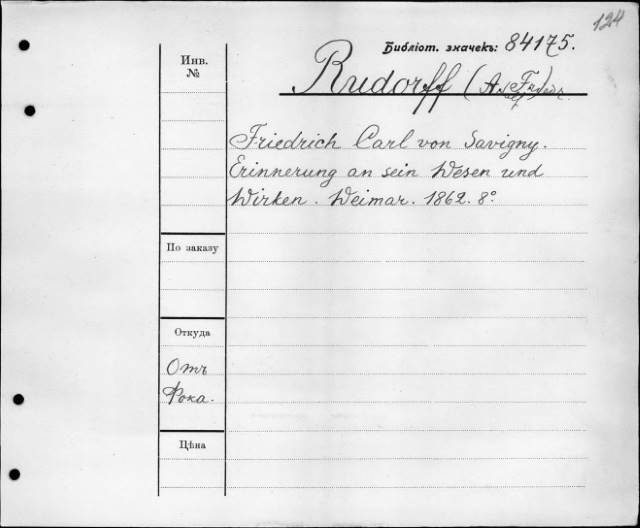 124
Библіот. значекъ: 84175.
Инв. №
Rudorff (A.
Friedrich Carl von Savigny.
Erinnerung an sein Wesen und
Wirken. Weimar. 1862. 8°
По заказу
Откуда
Отъ
Рока.
Цѣна